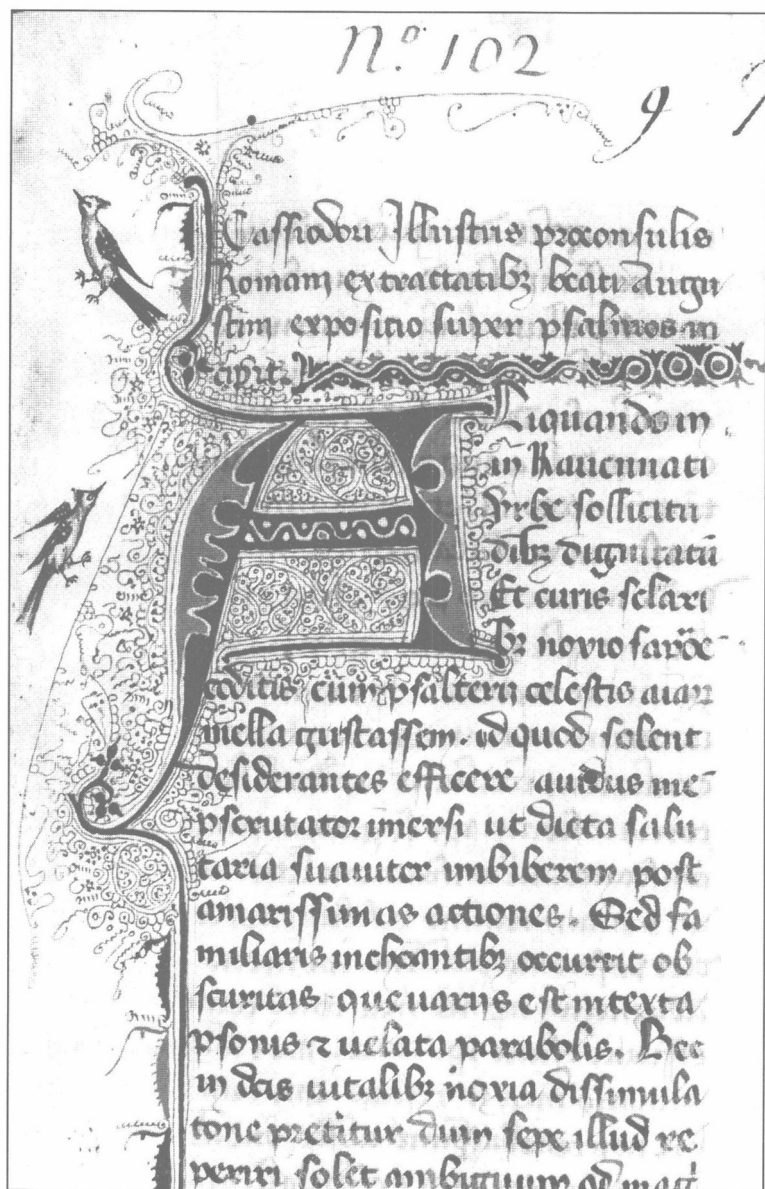 Nº 102
9
Cassiodori Illustris proconsulis
Romani ex tractatibꝫ beati Augu
stini expositio super psalmos in
cipit.
Aliquando in
in Ravennati
Vrbe sollicitu
dibꝫ dignitatū
Et curis sclari
bꝫ noxio
cum psalterii celestis
mella gustassem. id quod solent
desiderantes efficere auidus me
pscrutator imersi ut dicta salu
taria suauiter imbiberem post
amarissimas actiones. Sed fa
miliaris inchoantibꝫ occurrit ob
scuritas que uariis est intexta
psonis ⁊ uelata parabolis. Hec
in dcis uitalibꝫ noxia dissimula
tone pretitur dum sepe illud re
periri solet ambiguum